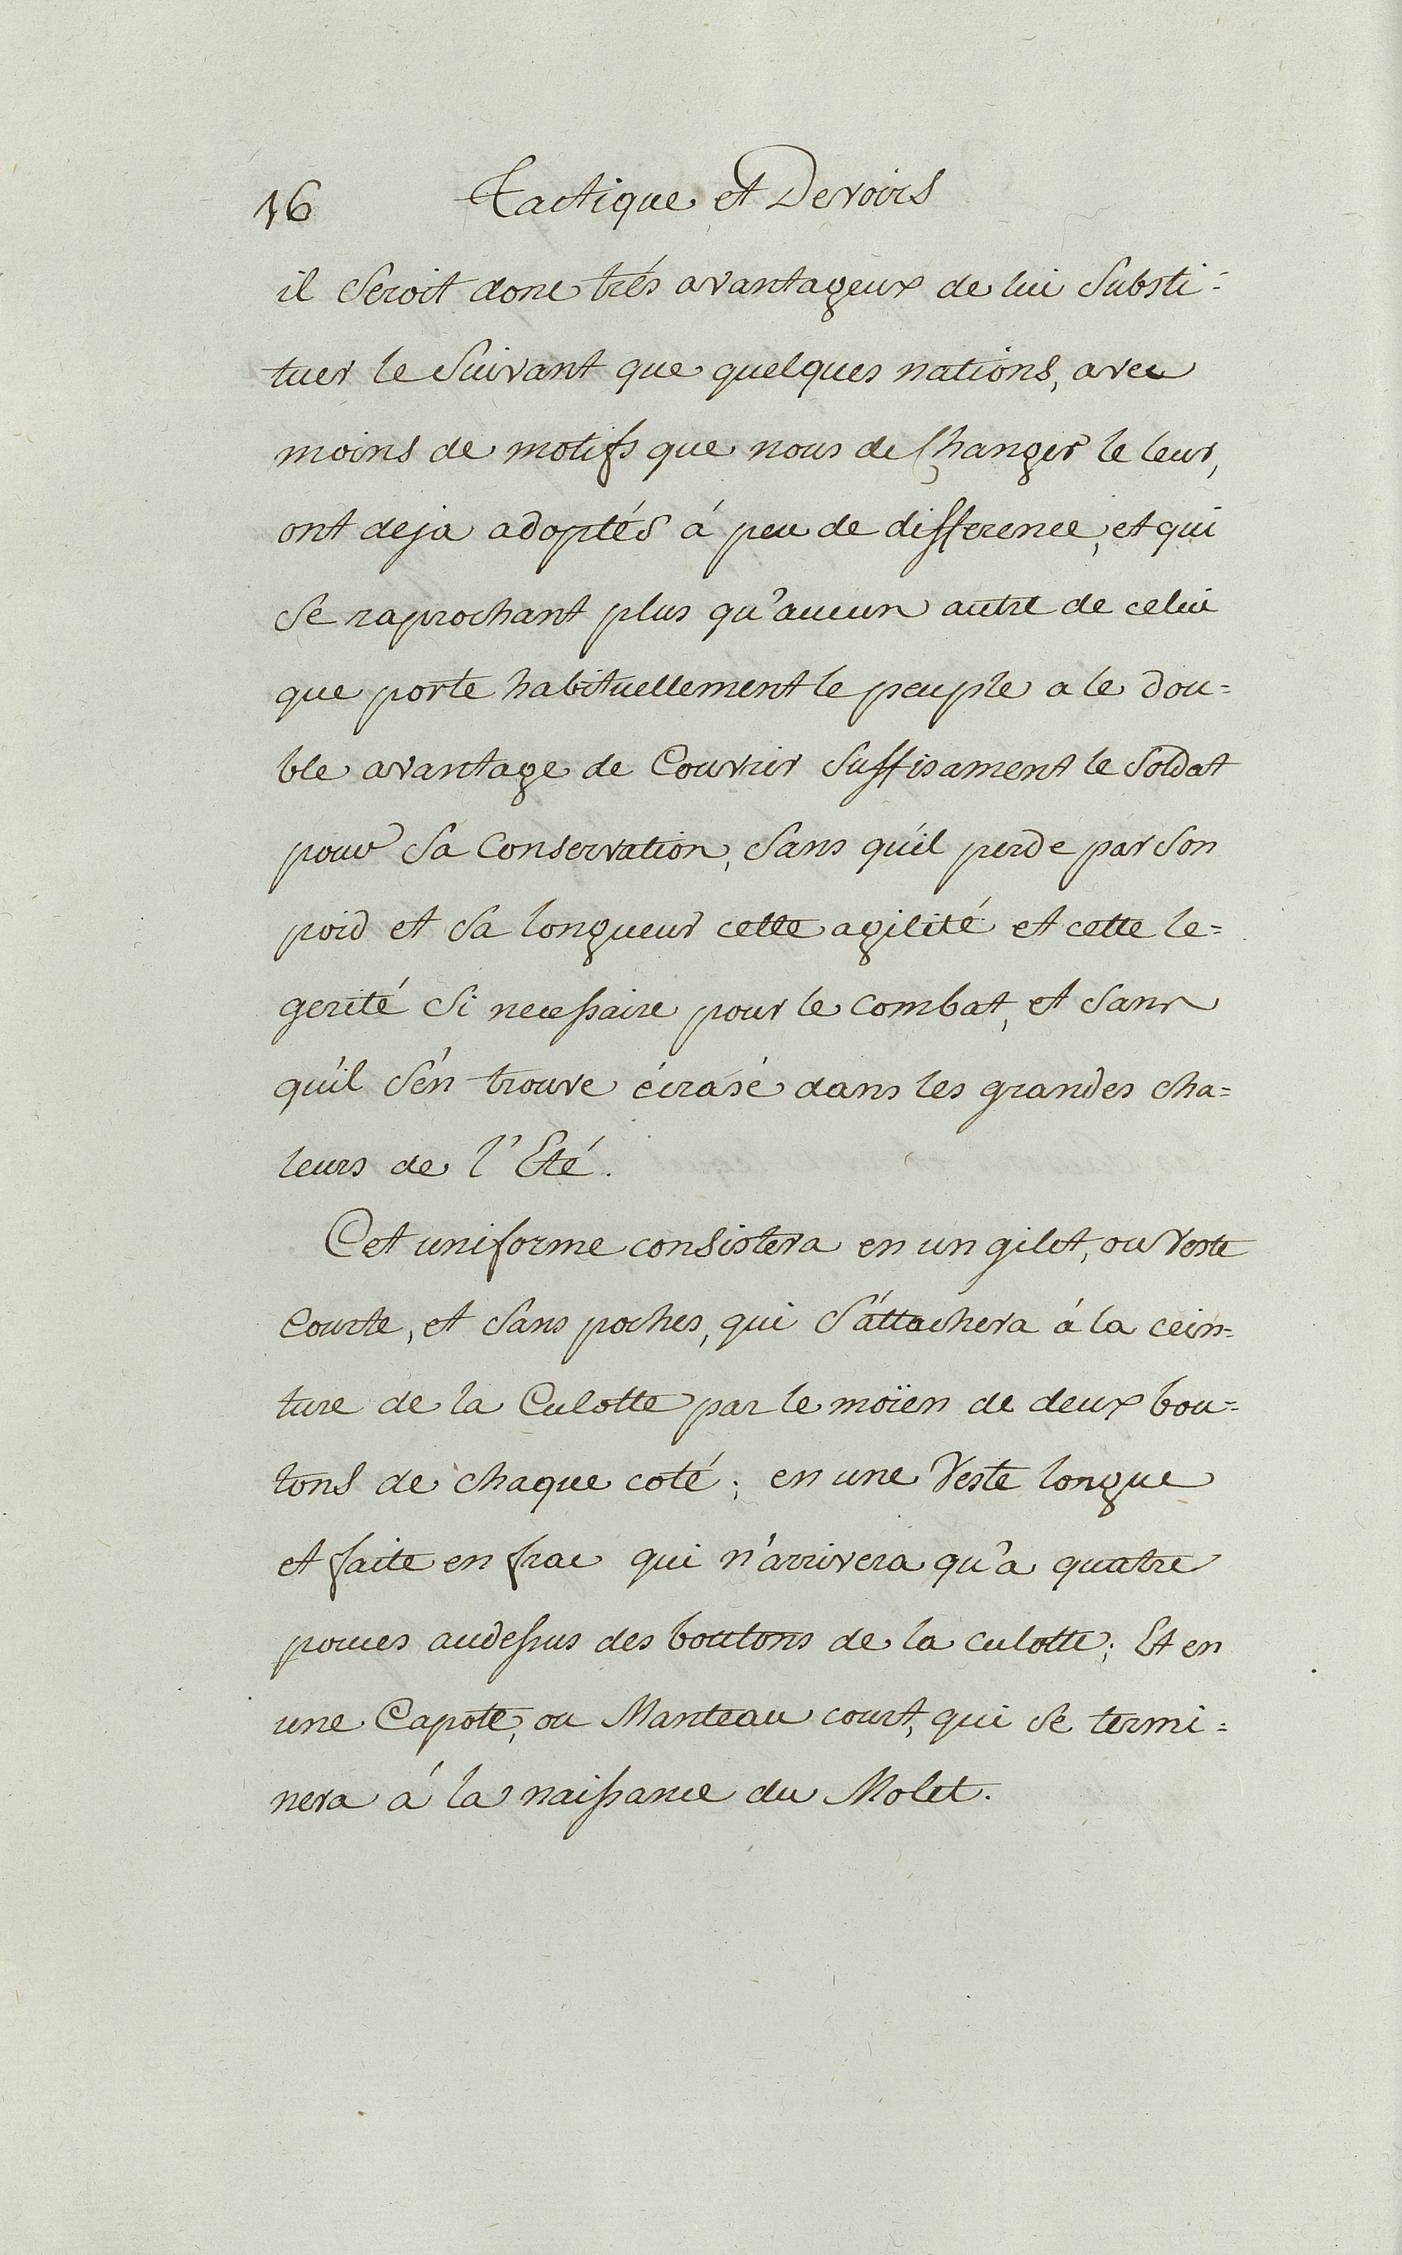 16 Tactique et Devoirs
il seroit donc trés avantageux de lui substi=
tuer le suivant que quelques nations, avec
moins de motifs que nous de changer le leur,
ont deja adoptés á peu de difference, et qui
se raprochant plus qu'aucun autre de celui
que porte habituellement le peuple a le dou=
ble avantage de Couvrir suffisament le soldat
pour sa Conservation, sans qu'il perde par son
poid et sa longueur cette agilité et cette le=
gerité si necessaire pour le Combat, et sans
qu'il s'én trouve écrasé dans les grandes cha=
leurs de l'Eté.
Cet uniforme consistera en un gilet, ou Veste
Courte, et sans poches, qui s'áttachera á la cein=
ture de la Culotte par le moïen de deux bou=
tons de chaque coté; en une Veste longue
et faite en frac qui n'arrivera qu'a quatre
pouces audessus des boutons de la culotte; Et en
une Capote, ou Manteau court, qui se termi=
nera á la naissance du Molet.